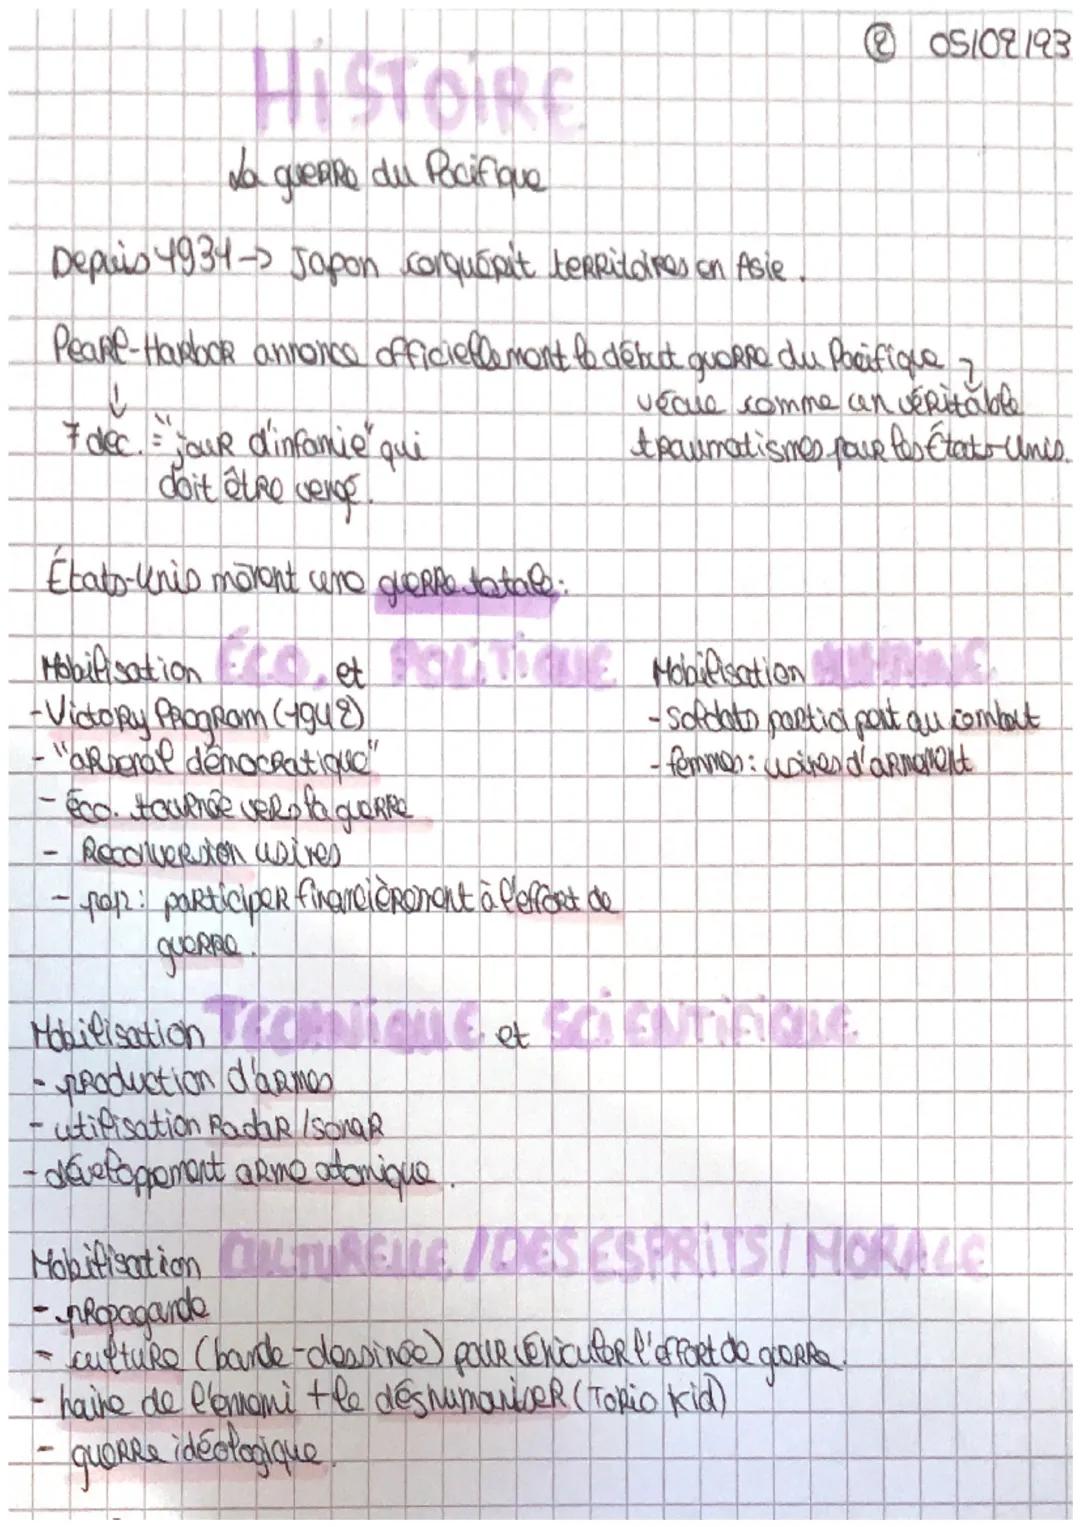 ② 05/02/23
HISTOIRE
La guerre du Pacifique
Depuis 1931 -> Japon conquérit territoires en Asie.
Pearl-Harbor annonce officiellement le début guerre du Pacifique
↓ vécue comme un véritable
7 dec. = "jour d'infamie" qui traumatismes pour les États-Unis.
doit être vengé.
États-Unis mènent une guerre totale:
Mobilisation ÉCO. et POLITIQUE Mobilisation HUMAINE.
- Victory Program (1942) - Soldats participent au combat
- "arsenal démocratique" - femmes: usines d'armement
- éco. tournée vers la guerre
- Reconversion usines
- pop: participer financièrement à l'effort de
guerre.
Mobilisation TECHNIQUE et SCIENTIFIQUE.
- production d'armes
- utilisation Radar / sonar
- développement arme atomique.
Mobilisation CULTURELLE / DES ESPRITS / MORALE
- propagande
- culture (bande-dessinée) pour véhiculer l'effort de guerre.
- haine de l'ennemi + le déshumaniser (Tokio Kid)
- guerre idéologique.